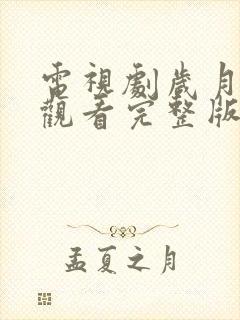 電視劇歲月
觀看完整版
孟夏之月